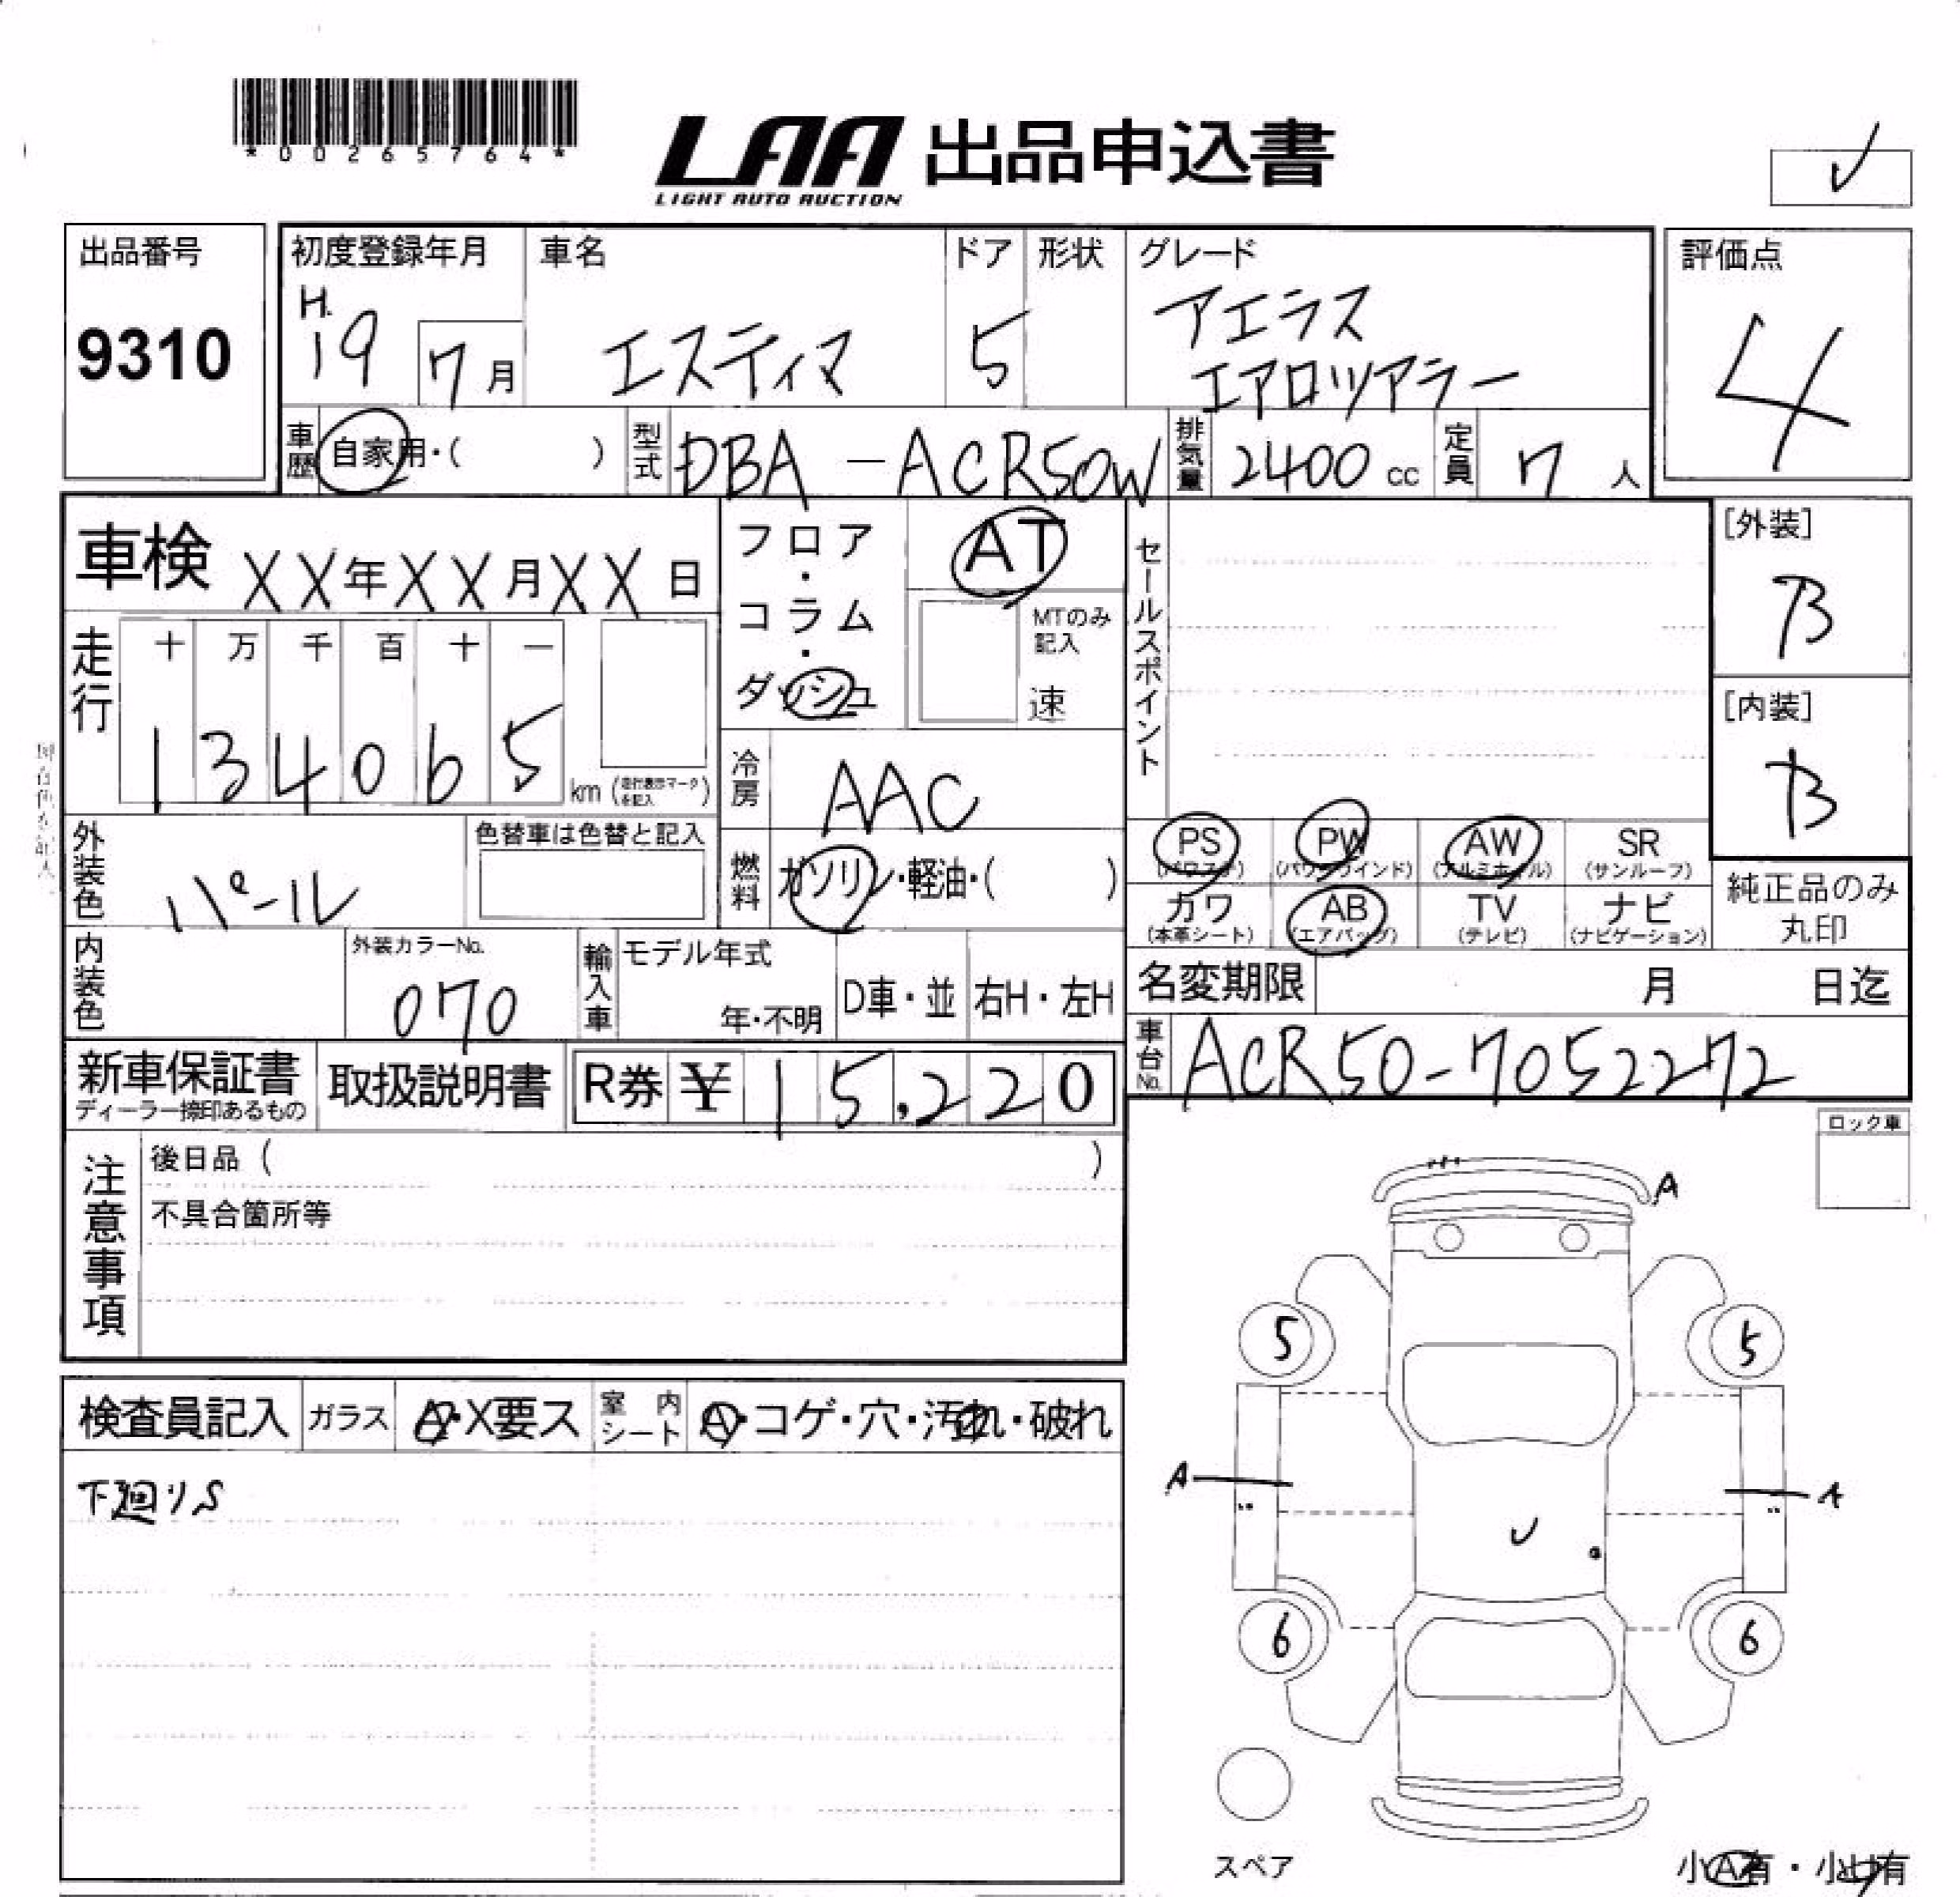 *00265764*
LAA 出品申込書
LIGHT AUTO AUCTION
出品番号
9310
初度登録年月
H.19 7月
車名
エスティマ
ドア
5
形状
グレード
アエラス
エアロツアラー
評価点
4
車歴 自家用・( )
型式 DBA-ACR50W
排気量 2400 cc
定員 7 人
車検 XX年XX月XX日
走行
十 万 千 百 十 一
1 3 4 0 6 5 km (走行表示マークを記入)
フロア・コラム・ダッシュ
AT
MTのみ
記入
速
セールスポイント
[外装]
B
[内装]
B
冷房 AAC
燃料 ガソリン・軽油・( )
外装色 パール
色替車は色替と記入
PS PW AW SR
(パワステ) (パワーウインド) (アルミホイル) (サンルーフ)
カワ AB TV ナビ
(本革シート) (エアバッグ) (テレビ) (ナビゲーション)
純正品のみ
丸印
内装色
外装カラーNo.
070
輸入車 モデル年式
年・不明
D車・並 右H・左H
名変期限 月 日迄
車台No. ACR50-7052272
新車保証書
ディーラー捺印あるもの
取扱説明書
R券 ¥ 15,220
注意事項
後日品 ( )
不具合箇所等
ロック車
A
5 5
A A
6 6
スペア
小A有・小U有
検査員記入 ガラス A・X要ス 室内シート A・コゲ・穴・汚れ・破れ
下廻りS